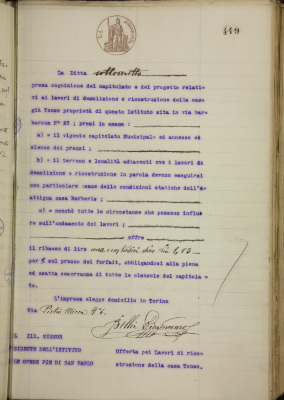 449
La Ditta sottoscritta
presa cognizione del capitolato e del progetto relati-
vi ai lavori di demolizione e ricostruzione della casa
già Tonso proprietà di questo Istituto sita in via Bar-
baroux N° 23 ; presi in esame :
a) - il vigente capitolato Municipale ed annesso e-
elenco dei prezzi ;
b) - il terreno e località adiacenti ove i lavori di
demolizione e ricostruzione in parola devono eseguirsi
con particolare esame delle condizioni statiche dell'a-
attigua casa Barberis ;
c) - nonchè tutte le circostanze che possono influi-
re sull'andamento dei lavori ;
offre
il ribasso di lire
per % sul prezzo del forfait, obbligandosi alla piena
ed esatta osservanza di tutte le clausole del capitola-
to.
L'impresa elegge domicilio in Torino
Via Pietro Micca N° 6.
L ILL. SIGNOR
RESIDENTE DELL'ISTITUTO
LE OPERE PIE DI SAN PAOLO
Offerta pei Lavori di rico-
struzione della casa Tonso.